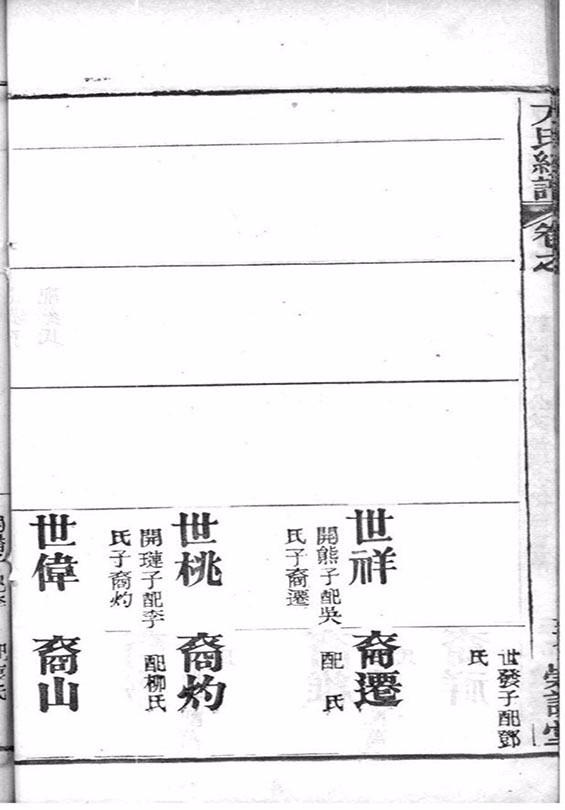 氏經譜
卷之
世發子配鄧
氏
世祥
開熊子配吳
氏子裔遷
裔遷
配 氏
世桃
開璉子配李
氏子裔灼
裔灼
配柳氏
世偉
裔山